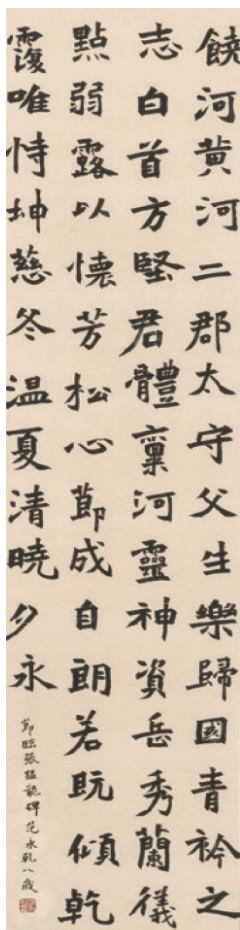 饒河黄河二郡太守父生樂歸國青衿之
志白首方堅君體稟河靈神資岳秀蘭儀
點弱露以懷芳松心莭成自朗若既傾乾
覆唯恃坤慈冬温夏清曉夕永
莭臨張猛龍碑范永乾八歲